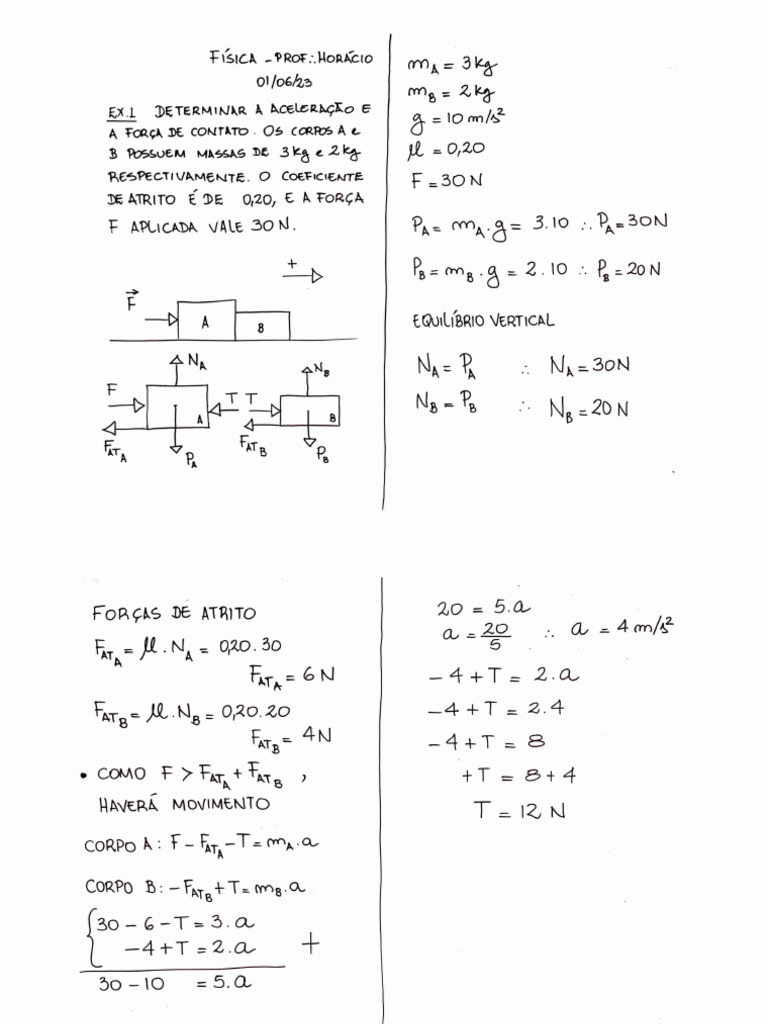 FÍSICA - PROF.: HORÁCIO
01/06/23
EX.1 DETERMINAR A ACELERAÇÃO E
A FORÇA DE CONTATO. OS CORPOS A e
B POSSUEM MASSAS DE 3kg e 2kg
RESPECTIVAMENTE. O COEFICIENTE
DE ATRITO É DE 0,20, E A FORÇA
F APLICADA VALE 30N.
+
F
A
B
N_A
N_B
F
T T
A
B
F_AT_A
P_A
F_AT_B
P_B
m_A = 3kg
m_B = 2kg
g = 10 m/s²
μ = 0,20
F = 30N
P_A = m_A.g = 3.10 ∴ P_A = 30N
P_B = m_B.g = 2.10 ∴ P_B = 20N
EQUILÍBRIO VERTICAL
N_A = P_A ∴ N_A = 30N
N_B = P_B ∴ N_B = 20N
FORÇAS DE ATRITO
F_AT_A = μ.N_A = 0,20.30
F_AT_A = 6N
F_AT_B = μ.N_B = 0,20.20
F_AT_B = 4N
• COMO F > F_AT_A + F_AT_B ,
HAVERÁ MOVIMENTO
CORPO A: F - F_AT_A - T = m_A.a
CORPO B: - F_AT_B + T = m_B.a
30 - 6 - T = 3.a
- 4 + T = 2.a +
30 - 10 = 5.a
20 = 5.a
a = 20/5 ∴ a = 4 m/s²
- 4 + T = 2.a
- 4 + T = 2.4
- 4 + T = 8
+ T = 8 + 4
T = 12 N